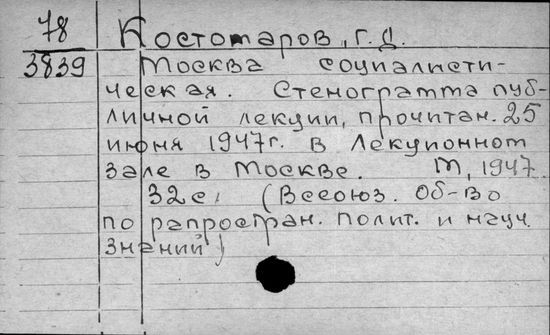 78 Костомаров, Г.Д.
3839 Москва социалисти-
ческая. Стенограмма пуб-
личной лекции, прочитан. 25
июня 1947г. в Лекционном
зале в Москве. М, 1947.
32с, (Всесоюз. об-во
по распростран. полит. и науч.
знаний)